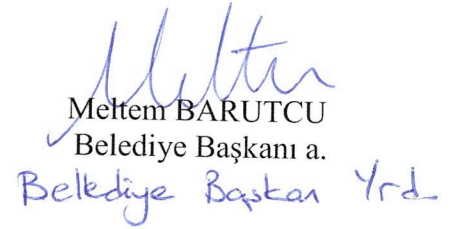 Meltem
Meltem BARUTCU
Belediye Başkanı a.
Belediye Başkan Yrd.